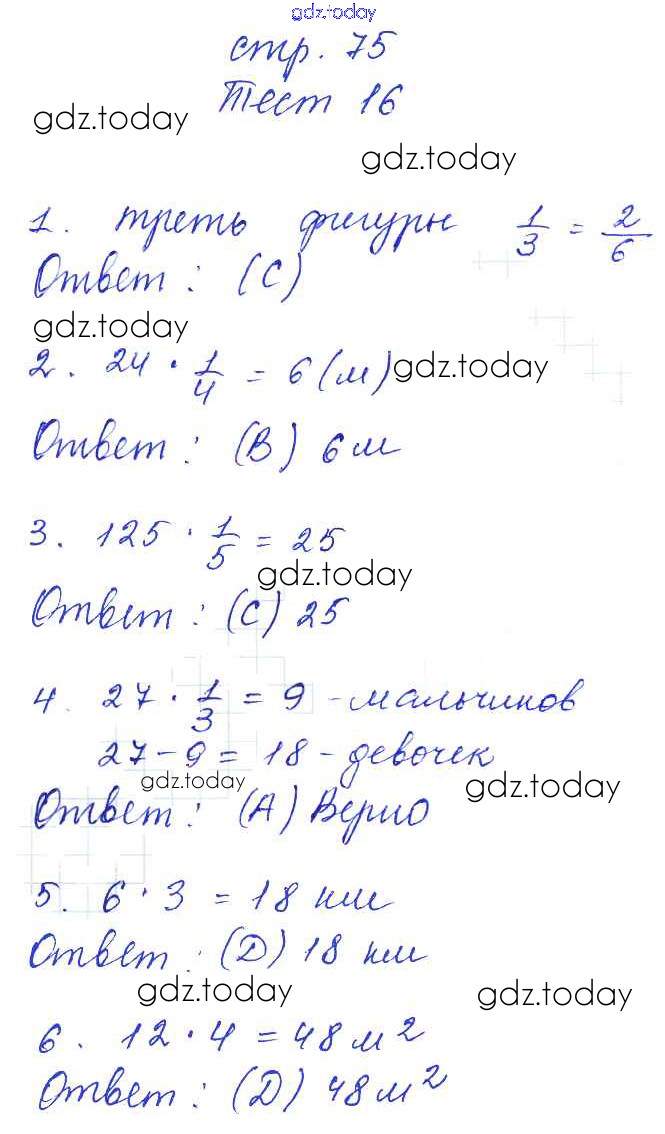 gdz.today
стр. 75
Тест 16
gdz.today
gdz.today
1. треть фигуры 1/3 = 2/6
Ответ: (С)
gdz.today
2. 24 · 1/4 = 6 (м)
gdz.today
Ответ: (В) 6 м
3. 125 · 1/5 = 25
gdz.today
Ответ: (С) 25
4. 27 · 1/3 = 9 - мальчиков
27 - 9 = 18 - девочек
gdz.today
gdz.today
Ответ: (А) Верно
5. 6 · 3 = 18 км
Ответ: (D) 18 км
gdz.today
gdz.today
6. 12 · 4 = 48 м²
Ответ: (D) 48 м²